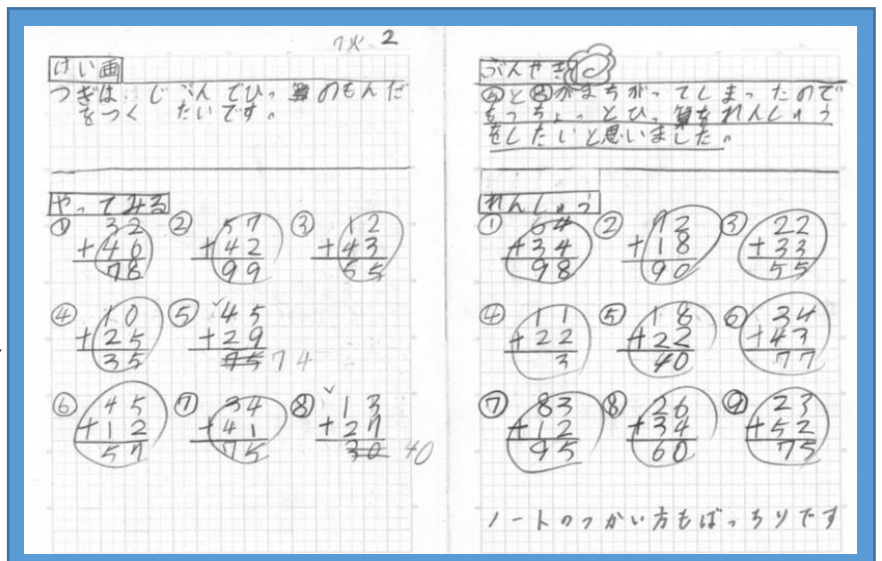 7火 2
けい画
つぎは、じぶんでひっ算のもんだ
をつく たいです。
やってみる
① 32
+46
78
② 57
+42
99
③ 12
+43
55
④ 10
+25
35
⑤ 45
+29
75 74
⑥ 45
+12
57
⑦ 34
+41
75
⑧ 13
+27
30 40
ぶんせき
⑤と⑧がまちがってしまったので
もっちょっとひっ算をれんしゅう
をしたいと思いました。
れんしゅう
① 64
+34
98
② 72
+18
90
③ 22
+33
55
④ 11
+22
3
⑤ 18
+22
40
⑥ 34
+43
77
⑦ 83
+12
95
⑧ 26
+34
60
⑨ 23
+52
75
ノートのつかい方もばっちりです